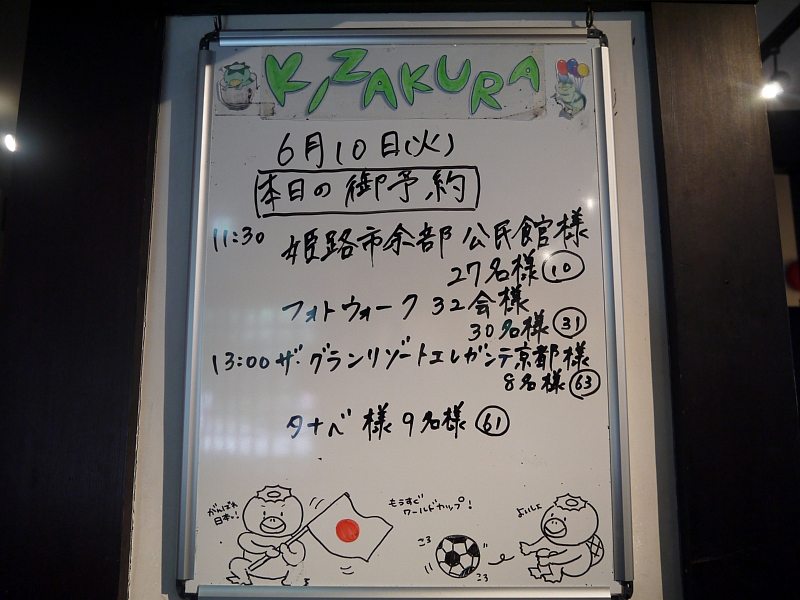 KIZAKURA
6月10日(火)
本日の御予約
11:30 姫路市余部公民館様
27名様 10
フォトウォーク32会様
30名様 31
13:00 ザ・グランリゾートエレガンテ京都様
8名様 63
タナベ様 9名様 61
がんばれ
日本!
もうすぐ
ワールドカップ!
コロ
コロ
よいしょ